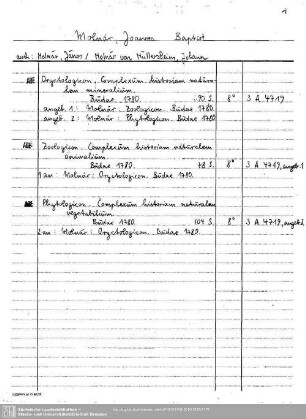 1
Molnár, Joannes Baptist
auch: Molnár, János / Molnár von Müllersheim, Johann
Oryctologicon, Complexum historiam natura-
lem mineralium.
Budae 1780. 90 S. 8° 3 A 4719
angeb. 1: Molnár: Zoologicon. Budae 1780.
angeb. 2: Molnár: Phytologicon. Budae 1780
Zoologicon. Complexum historiam naturalem
animalium.
Budae 1780. 78 S. 8° 3 A 4719, angeb. 1
1 an: Molnár: Oryctologicon. Budae 1780.
Phytologicon. Complexum historiam naturalem
vegetabilium.
Budae 1780. 104 S. 8° 3 A 4719, angeb. 2
2 an: Molnár: Oryctologicon. Budae 1780.
Sächsische Landesbibliothek -
Staats- und Universitätsbibliothek Dresden